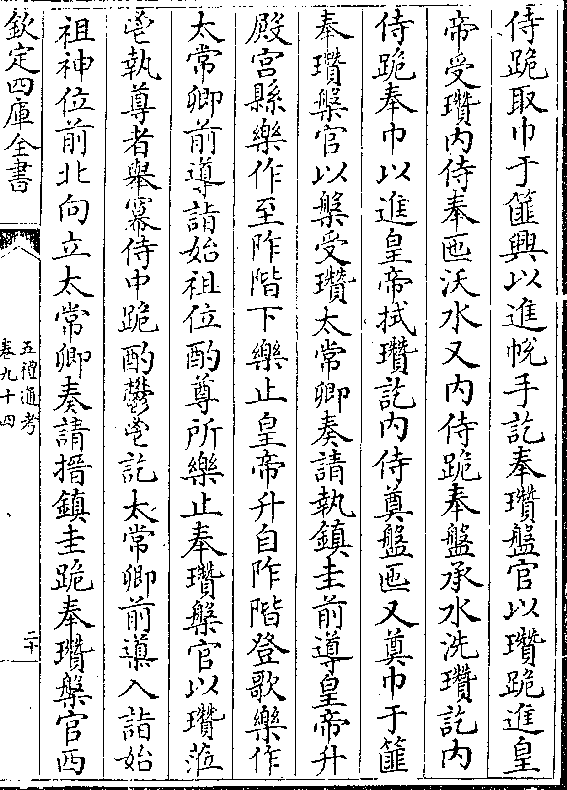 侍跪取巾于篚興以進帨手訖奉瓚盤官以瓚跪進皇
帝受瓚內侍奉匜沃水又內侍跪奉盤承水洗瓚訖內
侍跪奉巾以進皇帝拭瓚訖內侍奠盤匜又奠巾于篚
奉瓚槃官以槃受瓚太常卿奏請執鎮圭前導皇帝升
殿宮縣樂作至阼階下樂止皇帝升自阼階登歌樂作
太常卿前導詣始祖位酌尊所樂止奉瓚槃官以瓚蒞
鬯執尊者舉冪侍中跪酌鬱鬯訖太常卿前導入詣始
祖神位前北向立太常卿奏請搢鎮圭跪奉瓚槃官西
欽定四庫全書
五禮通考
卷九十四
二十